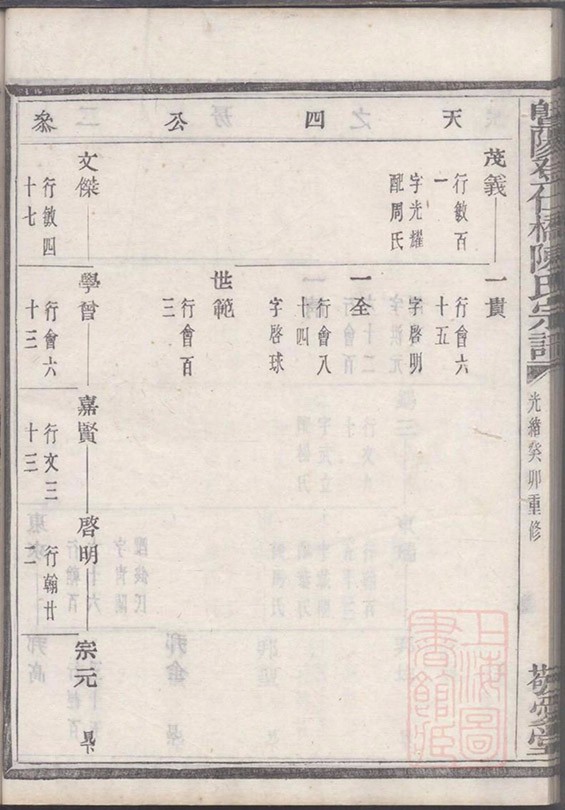 曁陽登仕橋陳氏宗譜
光緒癸卯重修
天四公叅
茂義
行敏百
一
字光耀
配周氏
一貴
行會六
十五
字啓明
一全
行會八
十四
字啓球
世範
行會百
三
文傑
行敏四
十七
學曾
行會六
十三
嘉賢
行文三
十三
啓明
行翰廿
三
宗元
上海圖書館藏